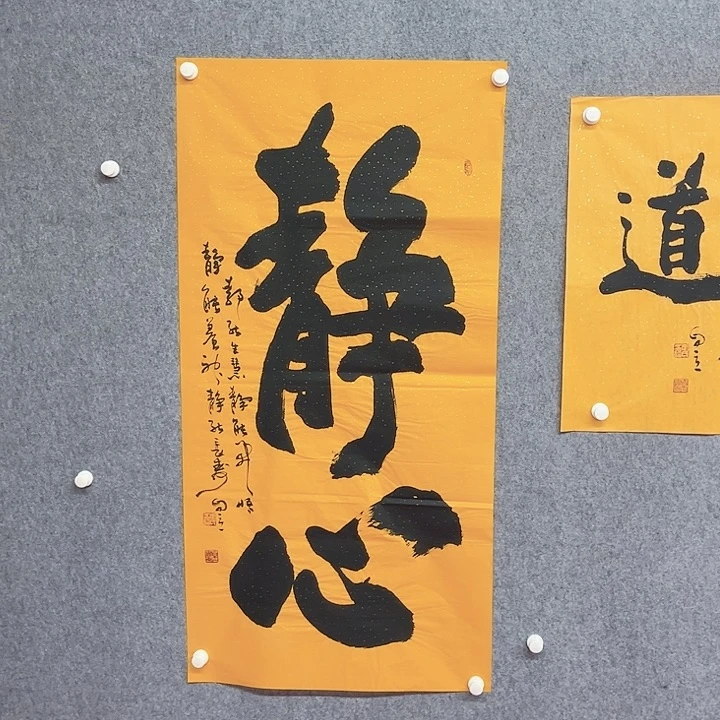 静心
静能生慧静能开悟
静能养神静能长寿
道